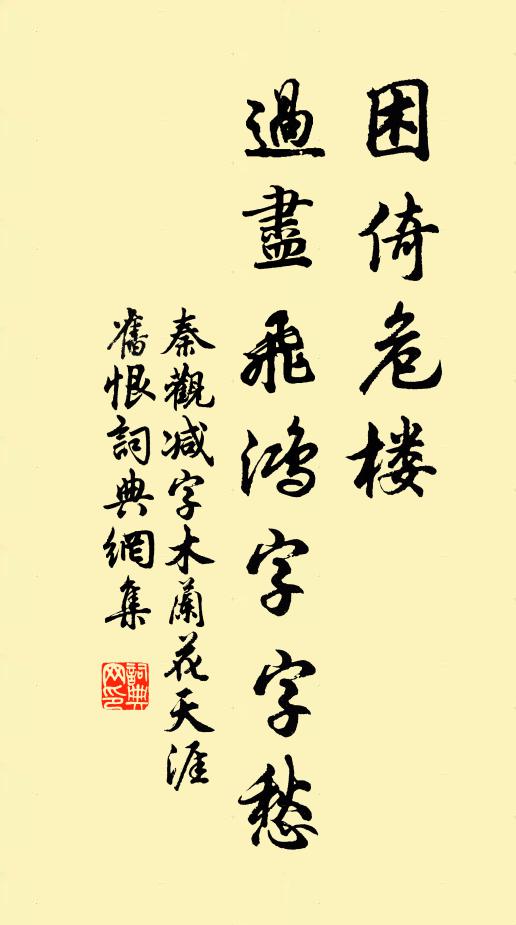 困倚危楼
過盡飛鴻字字愁
秦觀减字木蘭花天涯
舊恨詞典網集
詞典
网印